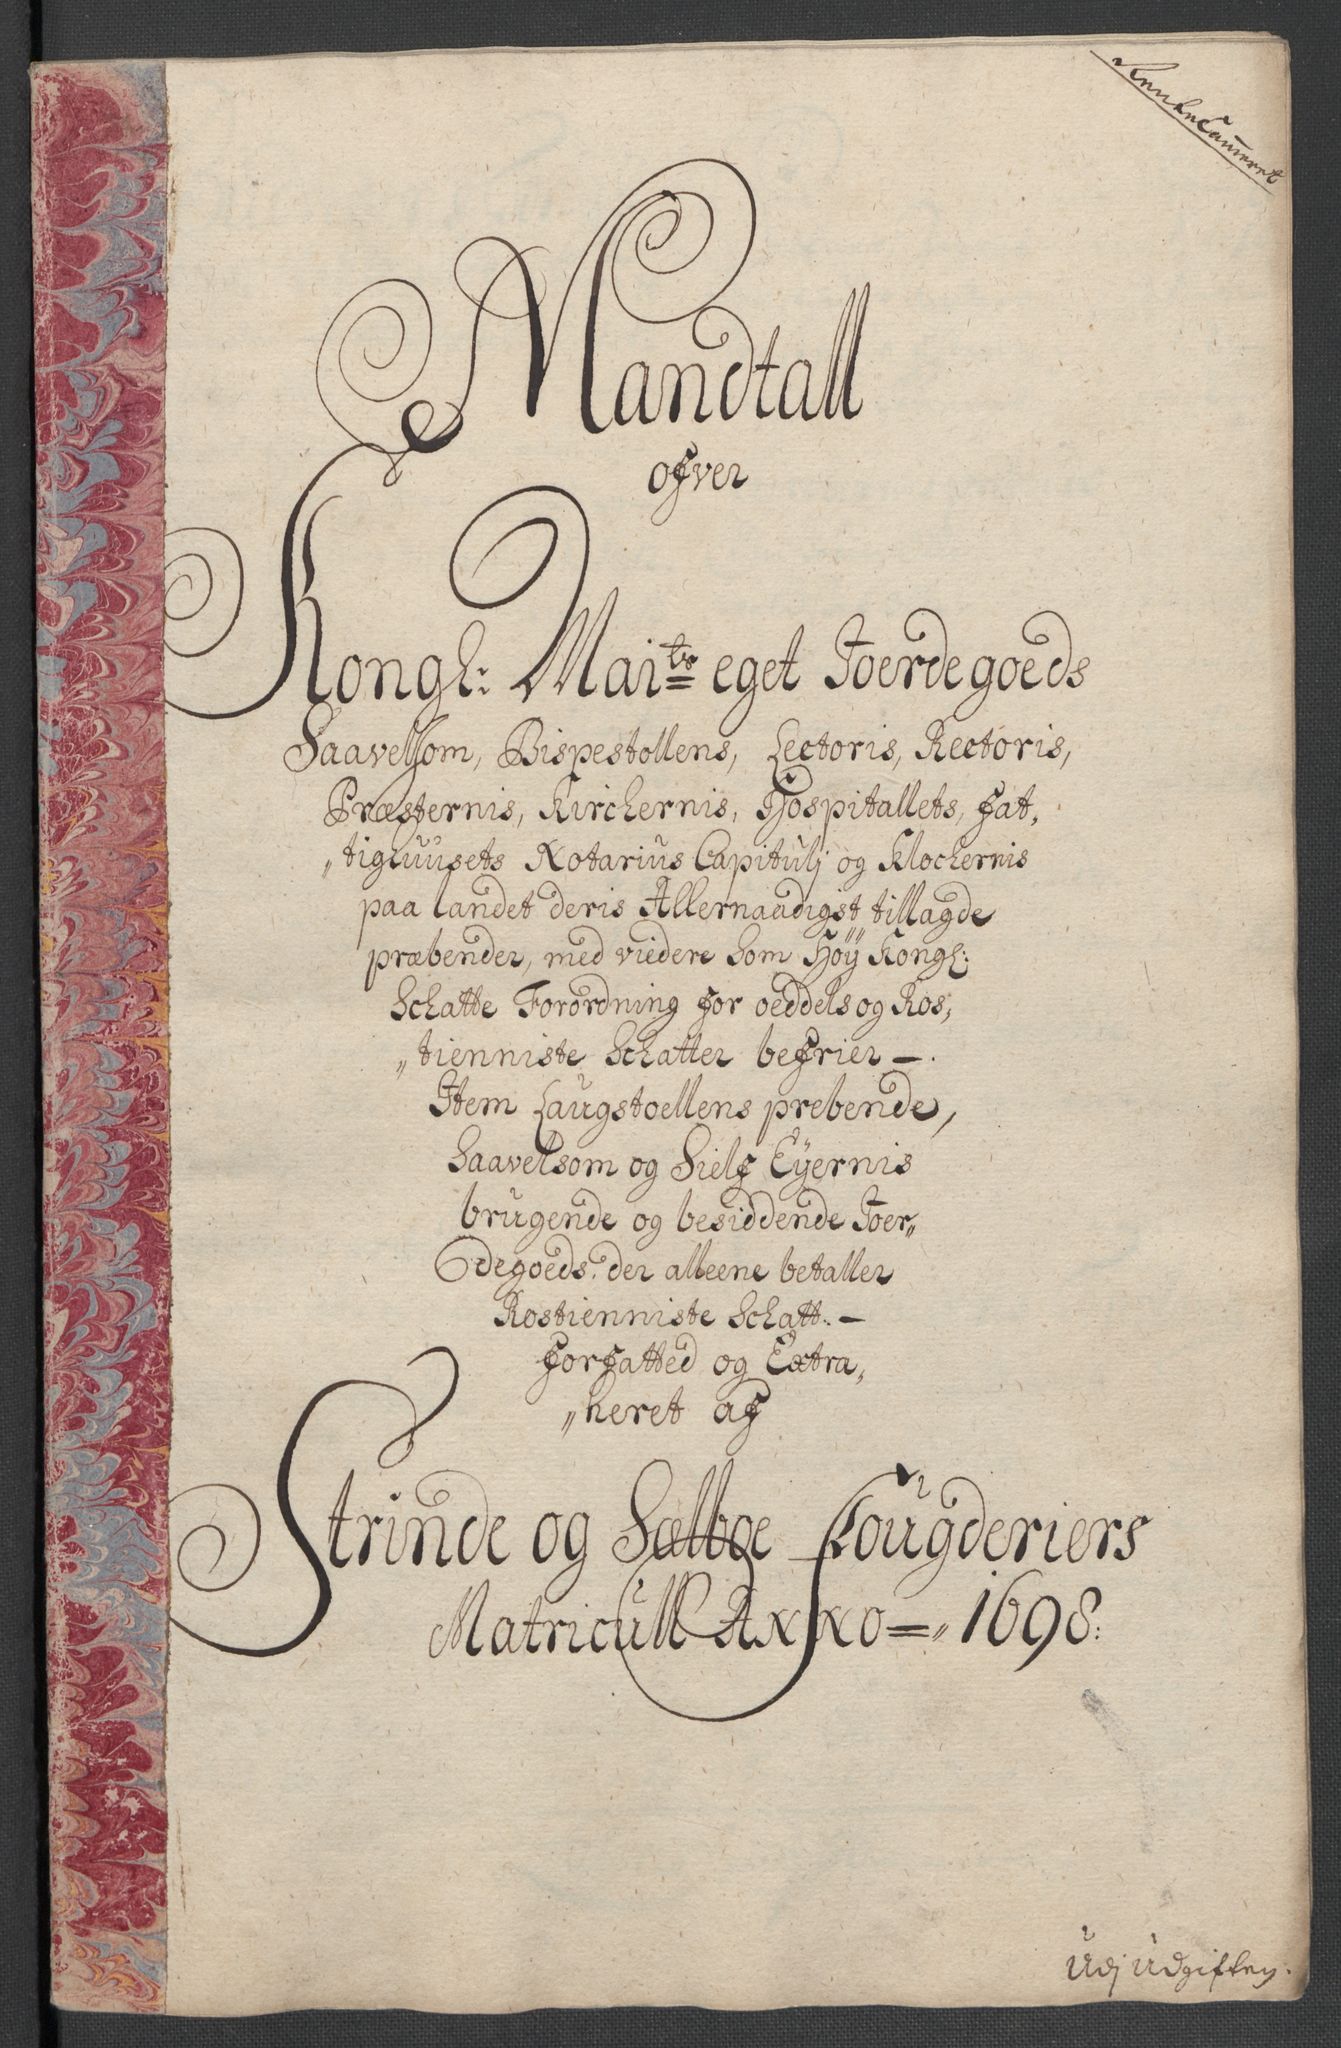 RenteCam̄eret
Mandtall
ofver
Kongl: Maiᵗˢ eget Joerdegoeds
Saavelsom, Bispestollens, Lectoris, Rectoris,
Præsternis, Kirchernis, Hospitallets, fat,
„tighuusets Notarius Capitulj og Klochernis
paa landet deris Allernaadigst tillagde
præbender, med viedere som Höÿ Kongl:
Schatte Forordning for oeddels og Ros,
„tienniste Schatter befrier —.
Item Laugstoellens prebende,
Saavelsom og Sielf Eÿernis
brugende og besiddende Joer„
degoeds. der alleene betaller
Rostienniste Schatt. —
forfatted og Extra,
„heret af
Strinde og Sælboe Fougderiers
Matricull Anno =„ 1698:
Udj Udgiften.